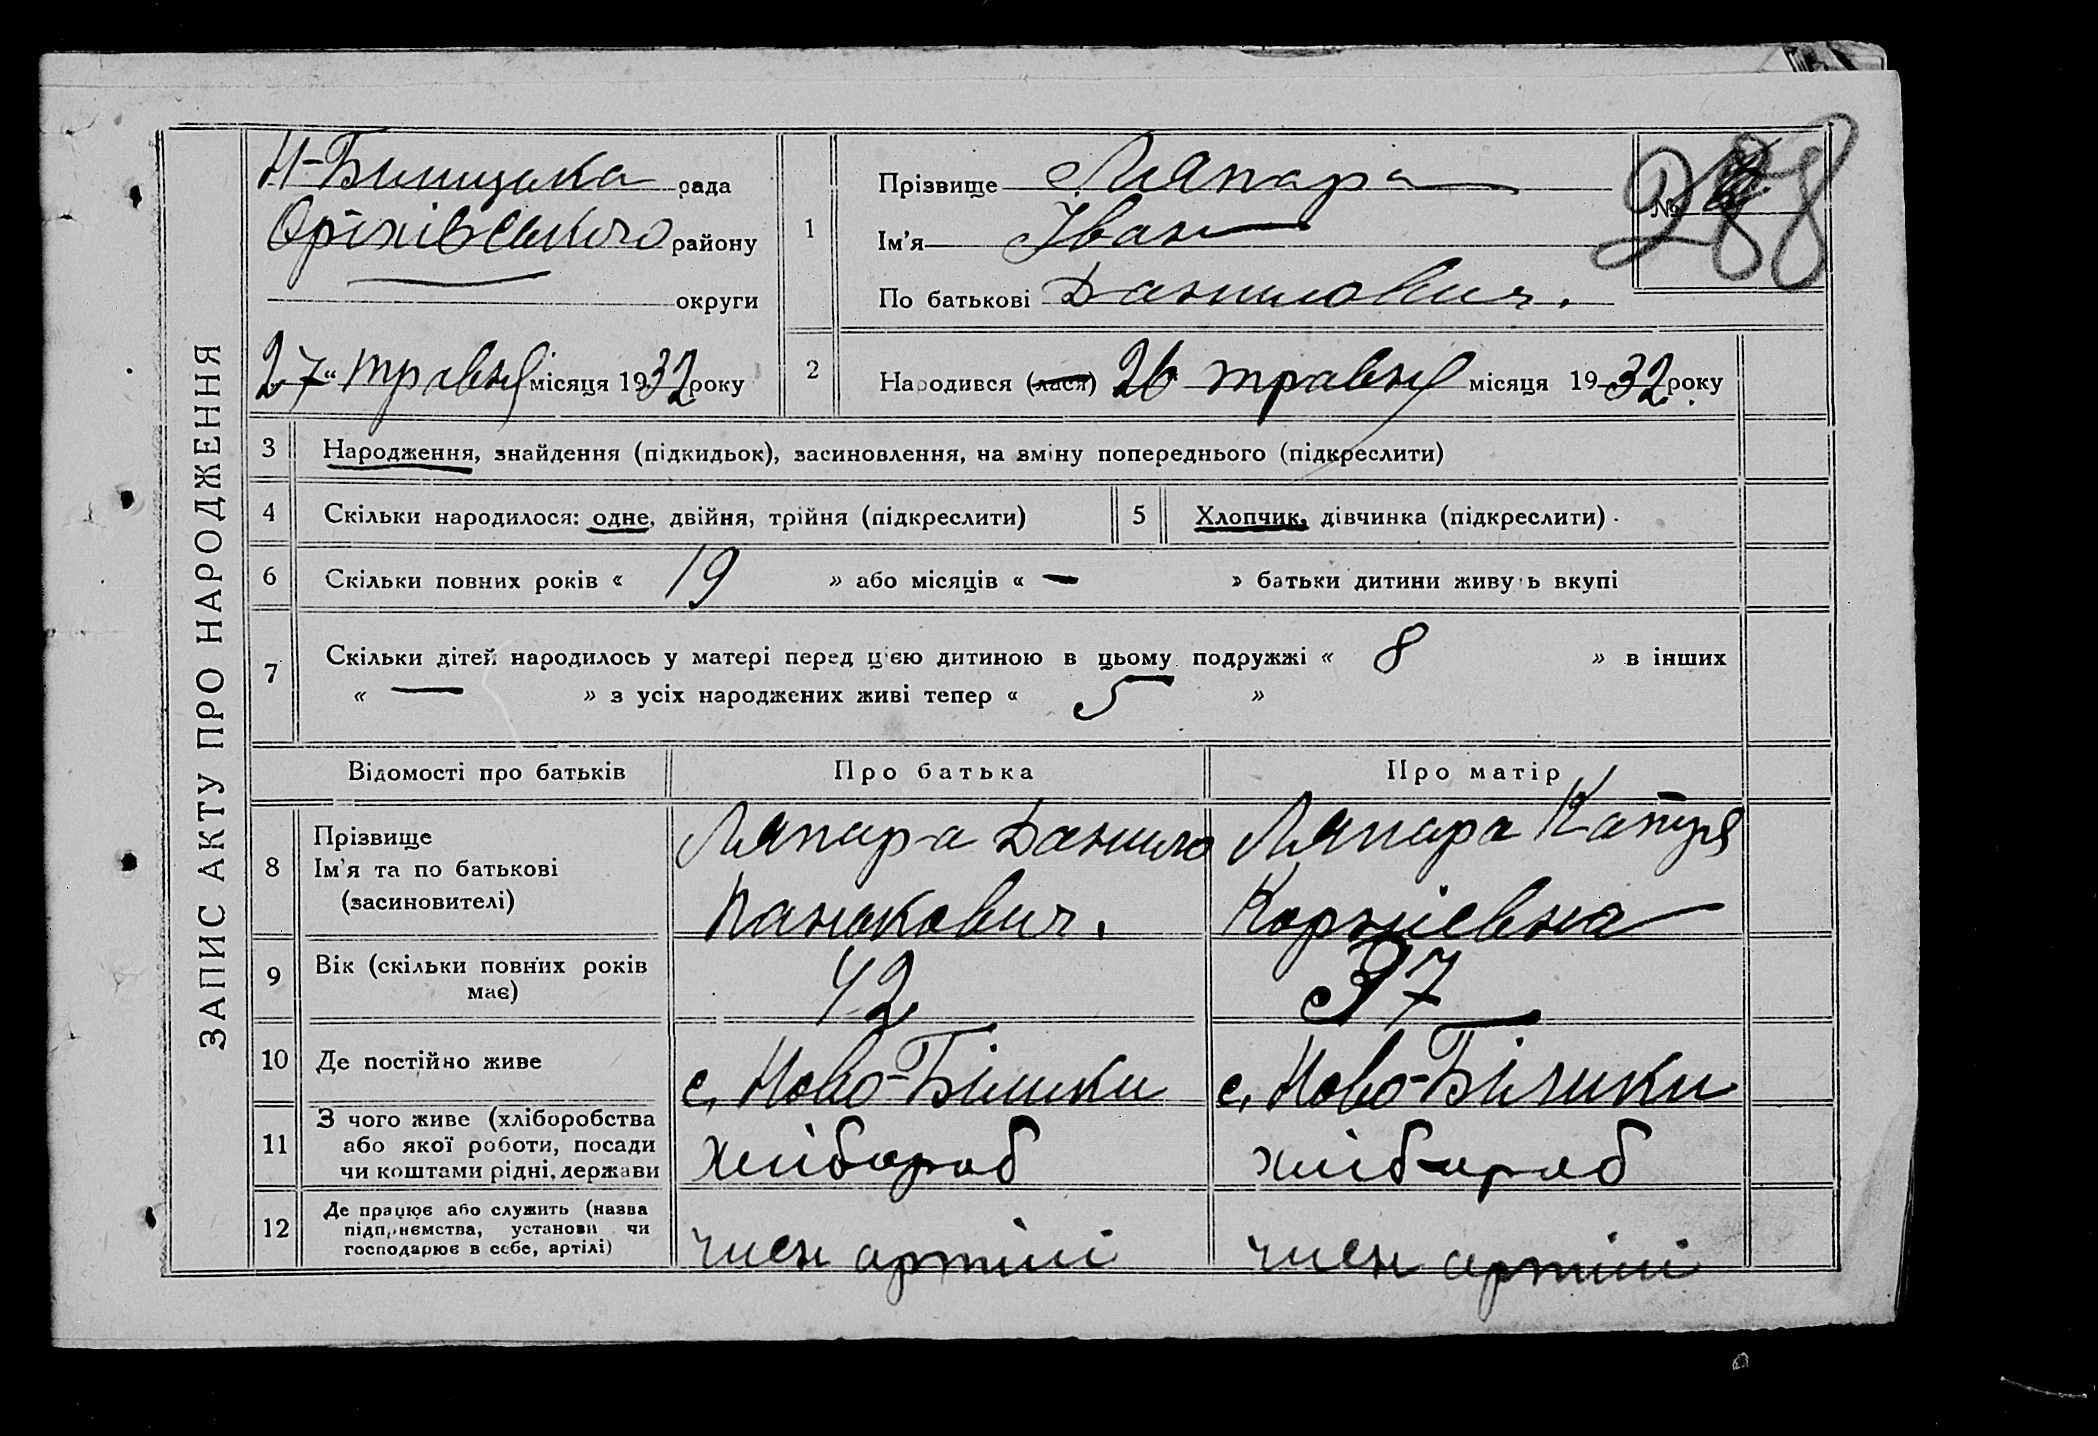 ЗАПИС АКТУ ПРО НАРОДЖЕННЯ
Н-Білицька рада
Оріхівського району
округи
27 " травня місяця 1932 року
1
Прізвище Ляпара
Ім'я Іван
По батькові Данилович.
№
288
2
Народився (лася) 26 травня місяця 1932 року
3 Народження, знайдення (підкидьок), засиновлення, на зміну попереднього (підкреслити)
4 Скільки народилося: одне, двійня, трійня (підкреслити)
5 Хлопчик, дівчинка (підкреслити)
6 Скільки повних років « 19 » або місяців « — » батьки дитини живуть вкупі
7 Скільки дітей народилось у матері перед цією дитиною в цьому подружжі « 8 » в інших
« — » з усіх народжених живі тепер « 5 »
Відомості про батьків Про батька Про матір
8 Прізвище
Ім'я та по батькові
(засиновителі)
Ляпара Данило
Панькович.
Ляпара Катря
Корніевна
9 Вік (скільки повних років
має)
42
37
10 Де постійно живе
с. Ново-Білики
с. Ново-Білики
11 З чого живе (хліборобства
або якої роботи, посади
чи коштами рідні, держави
хлібороб
хлібороб
12 Де працює або служить (назва
підприємства, установи чи
господарює в себе, артілі)
член артілі
член артілі